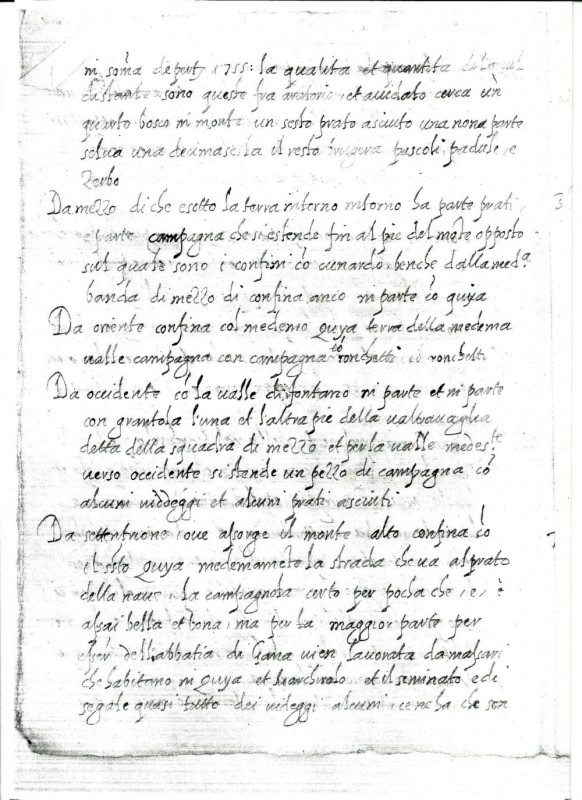 in som̃a de pert. 1755: la qualita et quantita
distante sono queste fra aratorio, et auidato cerca ùn
quarto bosco in monte un sesto prato asciuto una nona parte
selua una decimasesta il resto brugera pascoli, padule, e
Zerbo
Da mezzo di che esotto la terra intorno intorno ha parte prati
e parte campagna che si estende fin al pie del mõte opposto
sul quale sono i confini cõ cunardo, benche dalla med.ª
banda di mezzo di confina anco in parte cõ quiya
Da oriente confina col medemo Quya terra della medema
ualle campagna con campagna et ronchetti cõ ronchetti
Da occidente cõ la ualle di fontano in parte et in parte
con grantola l'una et l'altra pie della ualtrauaglia
detta della squadra di mezzo et per la ualle medes.te
uerso occidente si stende un pezzo di campagna cõ
alcuni uideggi et alcuni prati asciuti
Da settentrione, oue assorge il monte alto confina cõ
il ess̃o Quya medemamẽte la strada che ua al prato
della naue, la campagnola certo per pocha che, e, è
assai bella et bona, ma per la maggior parte per
esser dell'abbatia di Gana uien lauorata da massari
che habitano in Quya et Marchirolo et il seminato e di
segale quasi tutto dei uideggi alcuni, cen'ha che son